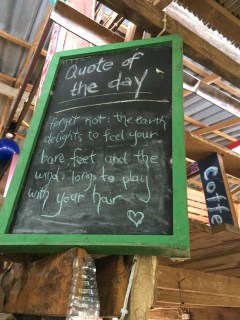 Quote of
the day
forget not: the earth
delights to feel your
bare feet and the
wind: longs to play
with your hair
Coffee